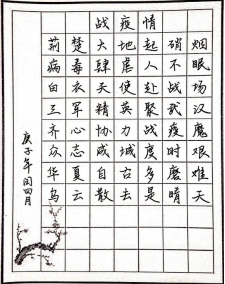 战疫情
荊楚大地起硝烟
病毒肆虐人不眠
白衣天使赴战场
三军精英聚武汉
齐心协力战疫魔
众志成城度时艰
华夏自古多磨难
乌云散去是晴天
庚子年闰四月